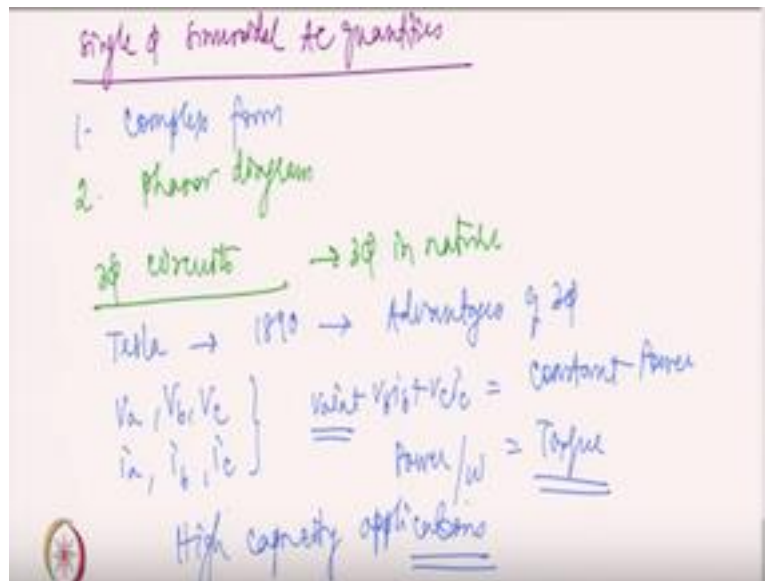 Single φ Sinusoidal AC quantities
1- Complex form
2. Phasor diagram
3φ circuits → 3φ in nature
Tesla → 1890 → Advantages of 3φ
Va, Vb, Vc } vaia+ vbib+vcic = constant Power
ia, ib, ic } Power/ω = Torque
High capacity applications